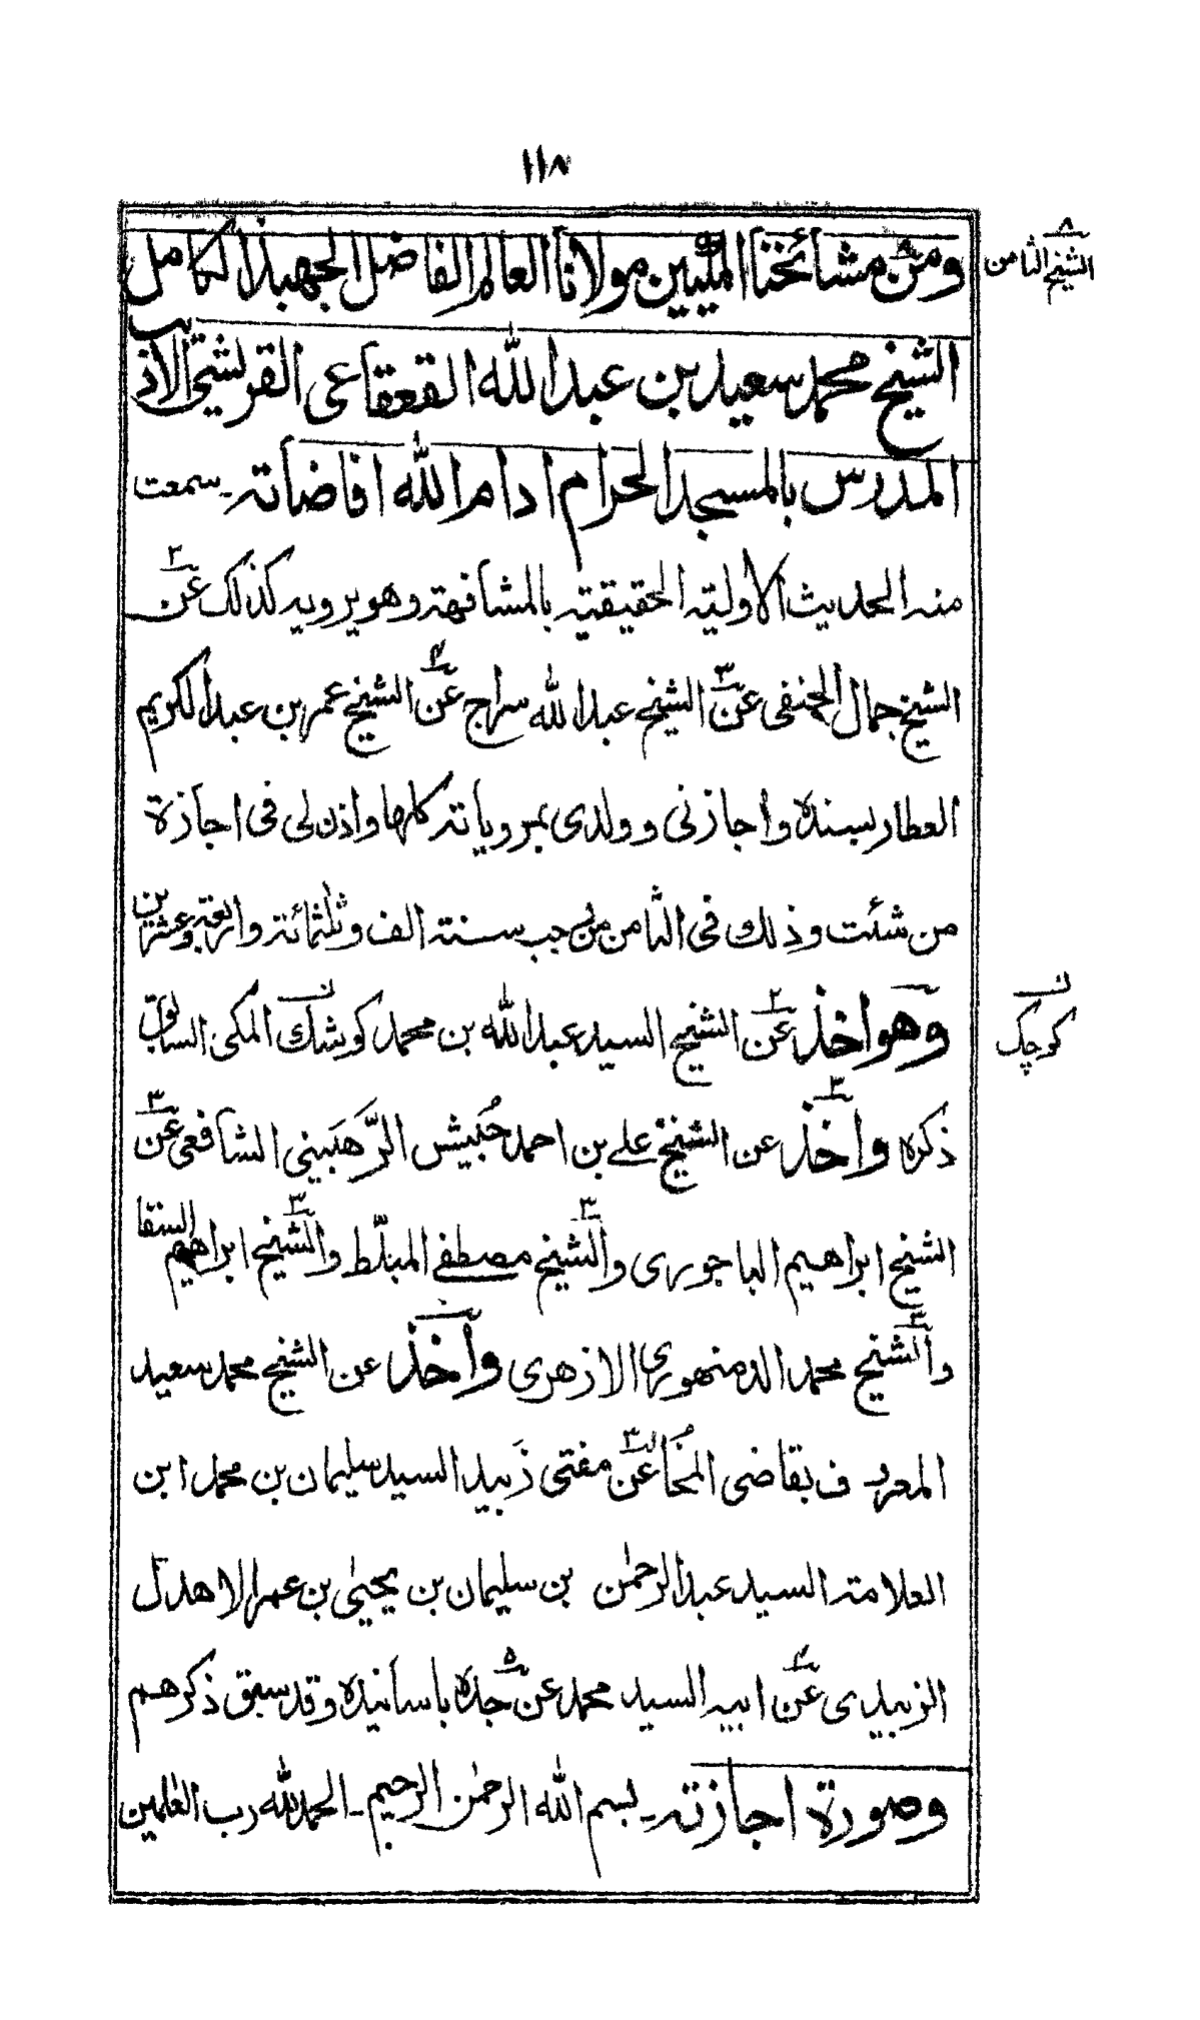 ١١٨
الشيخ الثامن ٨
ومن مشائختنا المكيين مولانا العالم الفاضل الجهبذ الكامل
الشيخ محمد سعيد بن عبد الله القعقاعى القرشى الاديب
المدرس بالمسجد الحرام ادام الله افاضاته ـ سمعت
منه الحديث الاولية الحقيقية بالمشافهة وهو يرويه كذلك عن ٢
الشيخ جمال الحنفى عن ٣ الشيخ عبد الله سراج عن ٤ الشيخ عمر بن عبد الكريم
العطار بسنده واجازنى وولدى بمروياته كلها واذن لى فى اجازة
من شئت وذلك فى الثامن من رجب سنة الف وثلثمائة واربعة وعشرين
وهو اخذ عن ٢ الشيخ السيد عبد الله بن محمد كوشك المكى السابق
كوچك
ذكره واخذ ٣ عن الشيخ على بن احمد حُبيش الرَّهَبينى الشافعى عن ٣
الشيخ ابراهيم الباجورى والشيخ ٣ مصطفى المبلّط والشيخ ٣ ابراهيم السقا
والشيخ ٣ محمد الدمنهورى الازهرى واخذ عن الشيخ محمد سعيد
المعروف بقاضى المُخَا عن ٣ مفتى زَبيد السيد سليمان بن محمد ابن
العلامة السيد عبد الرحمٰن بن سليمان بن يحيىٰ بن عمر الاهدل
الزبيدى عن ٤ ابيه السيد محمد عن ٥ جده باسانيده وقد سبق ذكرهم
وصورة اجازته ـ بسم الله الرحمٰن الرحيم ـ الحمد لله رب العٰلمين